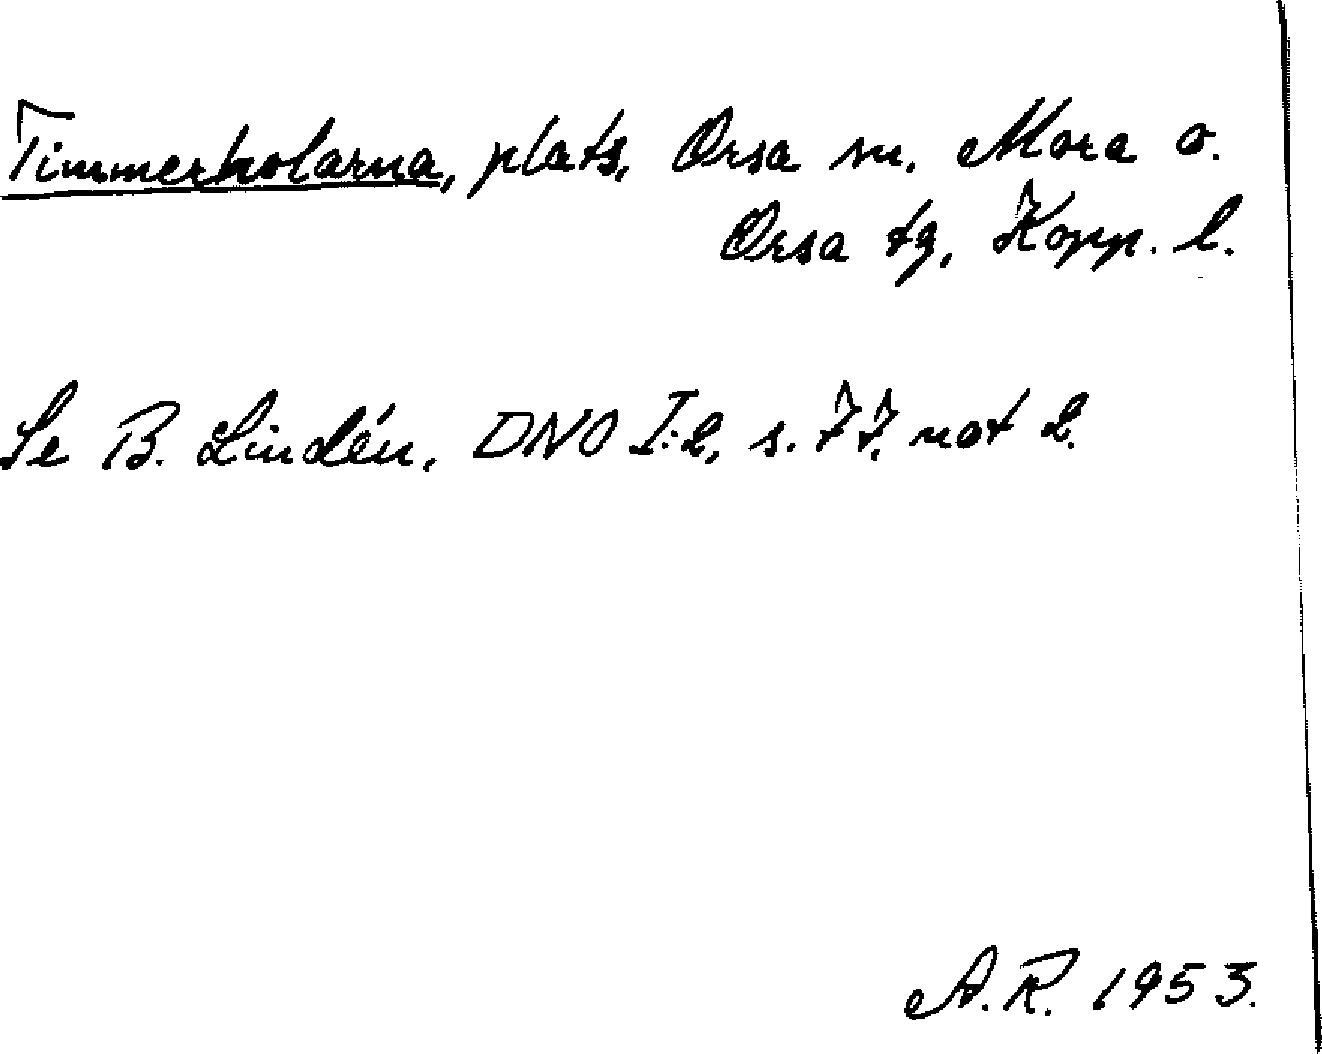 Timmerholarna, plats, Orsa sn. Mora o.
Orsa tg, Kopp. l.
Se B. Lindén, DNO I:2, s. 77, not 2.
A.R. 1953.